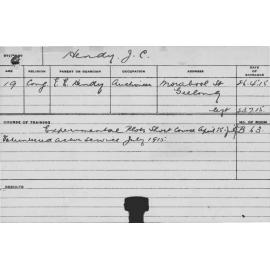 Hendy J. C.
AGE RELIGION PARENT OR GUARDIAN OCCUPATION ADDRESS DATE OF ENTRANCE
19 Cong. E. E. Hendy Auctioneer Moorabool St 26.4.15
Geelong
left 23.7.15
COURSE OF TRAINING No. OF ROOM
Experimental Plots Short Course April 15 B 63
Volunteered active service July 1915
RESULTS